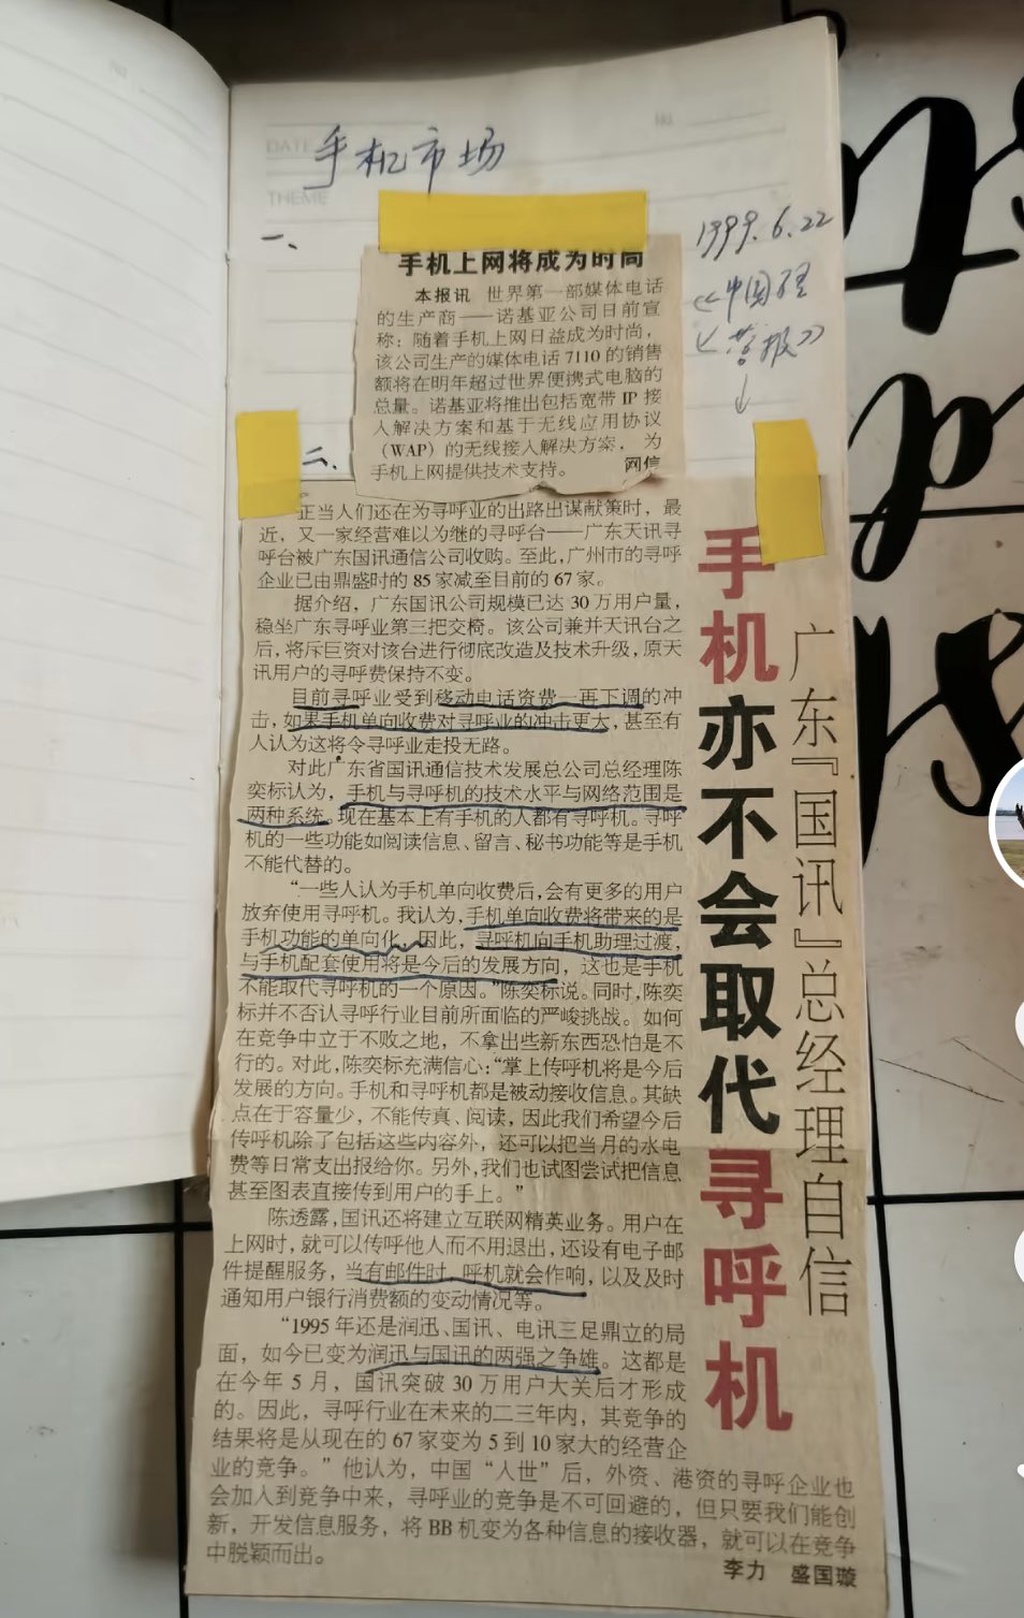 DATE
NO.
手机市场
THEME
一、
1999.6.22
《中国经
营报》
手机上网将成为时尚
本报讯 世界第一部媒体电话
的生产商——诺基亚公司日前宣
称：随着手机上网日益成为时尚，
该公司生产的媒体电话 7110 的销售
额将在明年超过世界便携式电脑的
总量。诺基亚将推出包括宽带 IP 接
入解决方案和基于无线应用协议
（WAP）的无线接入解决方案，为
手机上网提供技术支持。 网信
二、
手机亦不会取代寻呼机
广东『国讯』总经理自信
正当人们还在为寻呼业的出路出谋献策时，最
近，又一家经营难以为继的寻呼台——广东天讯寻
呼台被广东国讯通信公司收购。至此，广州市的寻呼
企业已由鼎盛时的 85 家减至目前的 67 家。
据介绍，广东国讯公司规模已达 30 万用户量，
稳坐广东寻呼业第三把交椅。该公司兼并天讯台之
后，将斥巨资对该台进行彻底改造及技术升级，原天
讯用户的寻呼费保持不变。
目前寻呼业受到移动电话资费一再下调的冲
击，如果手机单向收费对寻呼业的冲击更大，甚至有
人认为这将令寻呼业走投无路。
对此广东省国讯通信技术发展总公司总经理陈
奕标认为，手机与寻呼机的技术水平与网络范围是
两种系统。现在基本上有手机的人都有寻呼机。寻呼
机的一些功能如阅读信息、留言、秘书功能等是手机
不能代替的。
“一些人认为手机单向收费后，会有更多的用户
放弃使用寻呼机。我认为，手机单向收费将带来的是
手机功能的单向化，因此，寻呼机向手机助理过渡，
与手机配套使用将是今后的发展方向，这也是手机
不能取代寻呼机的一个原因。”陈奕标说。同时，陈奕
标并不否认寻呼行业目前所面临的严峻挑战。如何
在竞争中立于不败之地，不拿出些新东西恐怕是不
行的。对此，陈奕标充满信心：“掌上传呼机将是今后
发展的方向。手机和寻呼机都是被动接收信息。其缺
点在于容量少，不能传真、阅读，因此我们希望今后
传呼机除了包括这些内容外，还可以把当月的水电
费等日常支出报给你。另外，我们也试图尝试把信息
甚至图表直接传到用户的手上。”
陈透露，国讯还将建立互联网精英业务。用户在
上网时，就可以传呼他人而不用退出，还设有电子邮
件提醒服务，当有邮件时，呼机就会作响，以及及时
通知用户银行消费额的变动情况等。
“1995 年还是润迅、国讯、电讯三足鼎立的局
面，如今已变为润迅与国讯的两强之争雄。这都是
在今年 5 月，国讯突破 30 万用户大关后才形成
的。因此，寻呼行业在未来的二三年内，其竞争的
结果将是从现在的 67 家变为 5 到 10 家大的经营企
业的竞争。”他认为，中国“入世”后，外资、港资的寻呼企业也
会加入到竞争中来，寻呼业的竞争是不可回避的，但只要我们能创
新，开发信息服务，将 BB 机变为各种信息的接收器，就可以在竞争
中脱颖而出。
李力 盛国璇